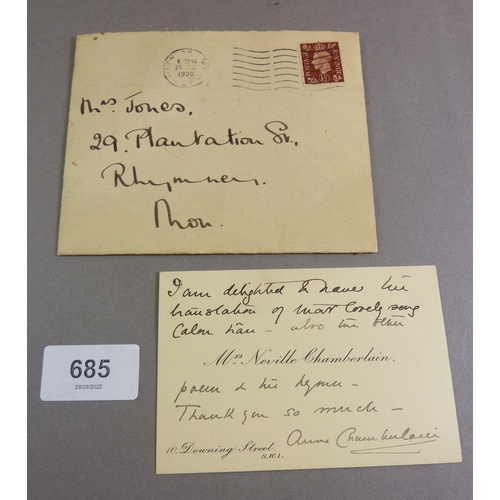 1939
POSTAGE
REVENUE
Mrs Jones,
29. Plantation St.,
Rhymney.
Mon.
I am delighted to have the
translation of that lovely song
Calon Lân - also the other
Mrs Neville Chamberlain.
poem & the hymn -
Thank you so much -
Anne Chamberlain
10, Downing Street.
S.W.1.
685
29/09/2022